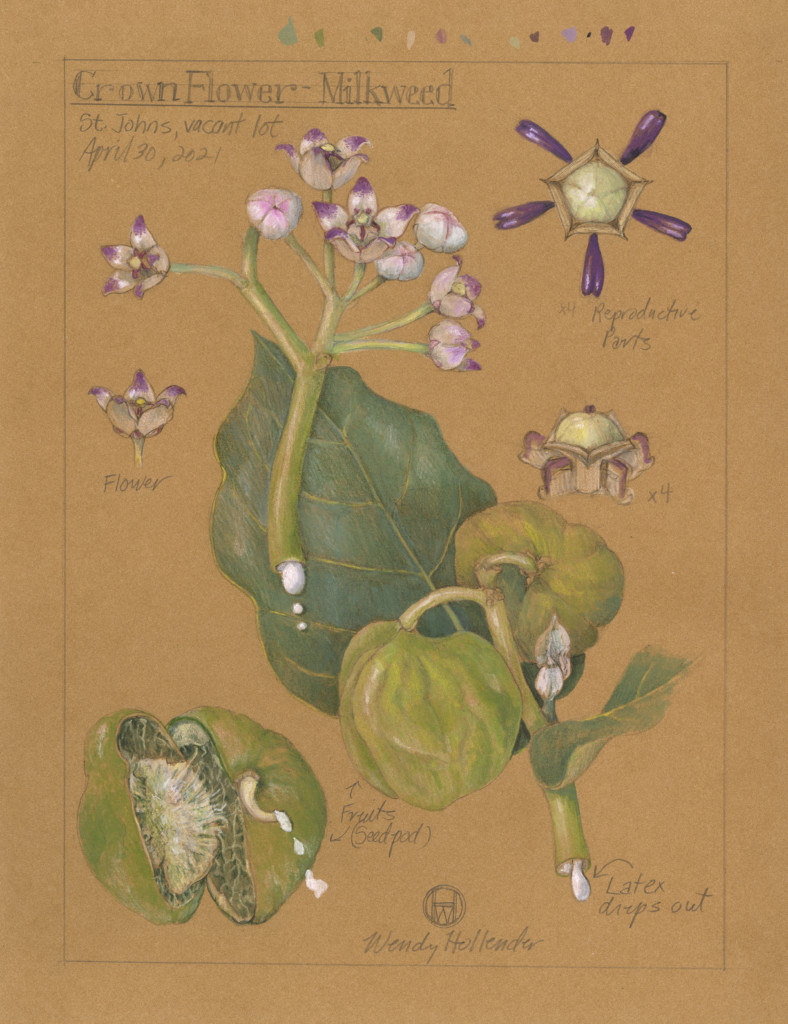 Crown Flower - Milkweed
St. Johns, vacant lot
April 30, 2021
x4 Reproductive
Parts
Flower
x4
Fruits
(Seedpod)
Latex
drips out
HW
Wendy Hollender